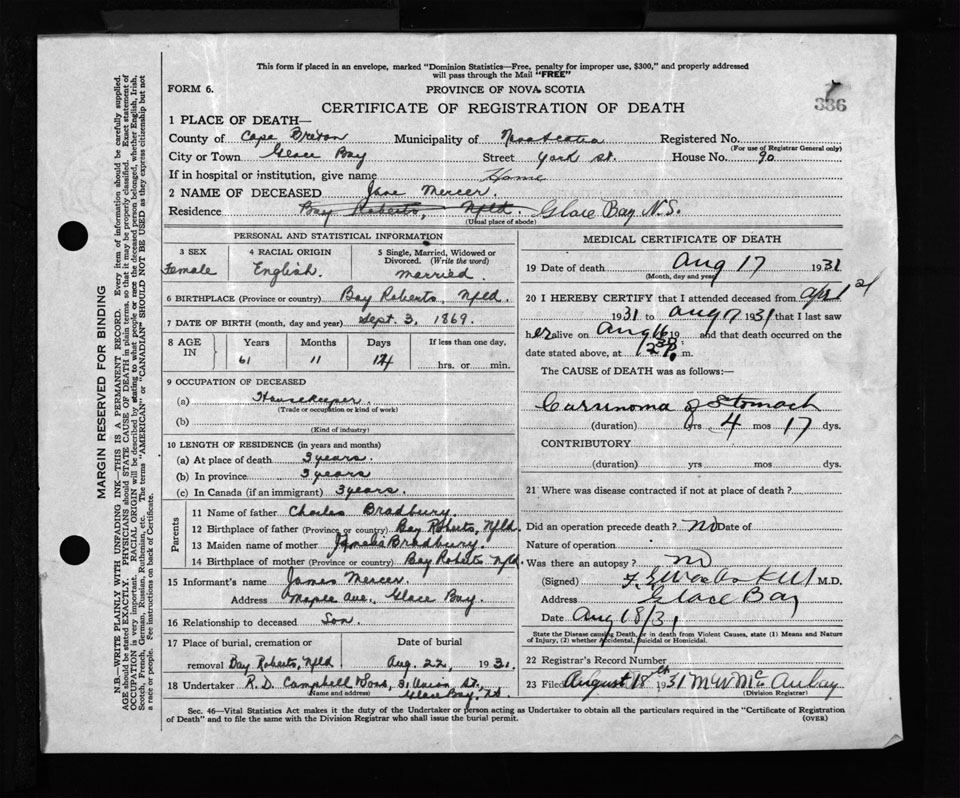 This form if placed in an envelope, marked "Dominion Statistics—Free, penalty for improper use, $300," and properly addressed
will pass through the Mail "FREE"
FORM 6.
PROVINCE OF NOVA SCOTIA
336
CERTIFICATE OF REGISTRATION OF DEATH
1 PLACE OF DEATH—
County of Cape Breton Municipality of Nova Scotia Registered No.
(For use of Registrar General only)
City or Town Glace Bay Street York St. House No. 90
If in hospital or institution, give name Home
2 NAME OF DECEASED Jane Mercer
Residence Bay Roberts, Nfld. Glace Bay N.S.
(Usual place of abode)
PERSONAL AND STATISTICAL INFORMATION
3 SEX
Female
4 RACIAL ORIGIN
English.
5 Single, Married, Widowed or
Divorced. (Write the word)
Married
6 BIRTHPLACE (Province or country) Bay Roberts, Nfld.
7 DATE OF BIRTH (month, day and year) Sept. 3, 1869.
8 AGE
IN
Years Months Days If less than one day,
61 11 14 hrs. or min.
9 OCCUPATION OF DECEASED
(a) Housekeeper
(Trade or occupation or kind of work)
(b)
(Kind of industry)
10 LENGTH OF RESIDENCE (in years and months)
(a) At place of death 3 years.
(b) In province 3 years
(c) In Canada (if an immigrant) 3 years.
Parents
11 Name of father Charles Bradbury.
12 Birthplace of father (Province or country) Bay Roberts, Nfld.
13 Maiden name of mother Bradbury.
14 Birthplace of mother (Province or country) Bay Roberts Nfld.
15 Informant's name James Mercer
Address Maple Ave., Glace Bay.
16 Relationship to deceased Son.
17 Place of burial, cremation or Date of burial
removal Bay Roberts, Nfld Aug. 22, 1931.
18 Undertaker R.D. Campbell & Sons, 31 Union St.,
(Name and address) Glace Bay, N.S.
MEDICAL CERTIFICATE OF DEATH
19 Date of death Aug 17 1931
(Month, day and year)
20 I HEREBY CERTIFY that I attended deceased from Apr 1st
1931 to Aug 17 1931 that I last saw
her alive on Aug 16 19 and that death occurred on the
date stated above, at m.
The CAUSE of DEATH was as follows:—
Carcinoma of Stomach
(duration) yrs 4 mos 17 dys.
CONTRIBUTORY
(duration) yrs mos dys.
21 Where was disease contracted if not at place of death?
Did an operation precede death? No Date of
Nature of operation
Was there an autopsy? No
(Signed) M.D.
Address Glace Bay
Date Aug 18/31
State the Disease causing Death, or in death from Violent Causes, state (1) Means and Nature
of Injury, (2) whether Accidental, Suicidal or Homicidal.
22 Registrar's Record Number
23 Filed August 18th 1931 Mc Aulay
(Division Registrar)
Sec. 46—Vital Statistics Act makes it the duty of the Undertaker or person acting as Undertaker to obtain all the particulars required in the "Certificate of Registration
of Death" and to file the same with the Division Registrar who shall issue the burial permit.
(OVER)
MARGIN RESERVED FOR BINDING
N.B.—WRITE PLAINLY WITH UNFADING INK—THIS IS A PERMANENT RECORD. Every item of information should be carefully supplied.
AGE should be stated EXACTLY. PHYSICIANS should STATE CAUSE OF DEATH in plain terms, so that it may be properly classified. Exact statement of
OCCUPATION is very important. RACIAL ORIGIN will be described by stating to what people or race the deceased person belonged, whether English, Irish,
Scotch, French, German, Russian, Ruthenian, etc. The terms "AMERICAN" or "CANADIAN" SHOULD NOT BE USED as they express citizenship but not
a race or people. See instructions on back of Certificate.